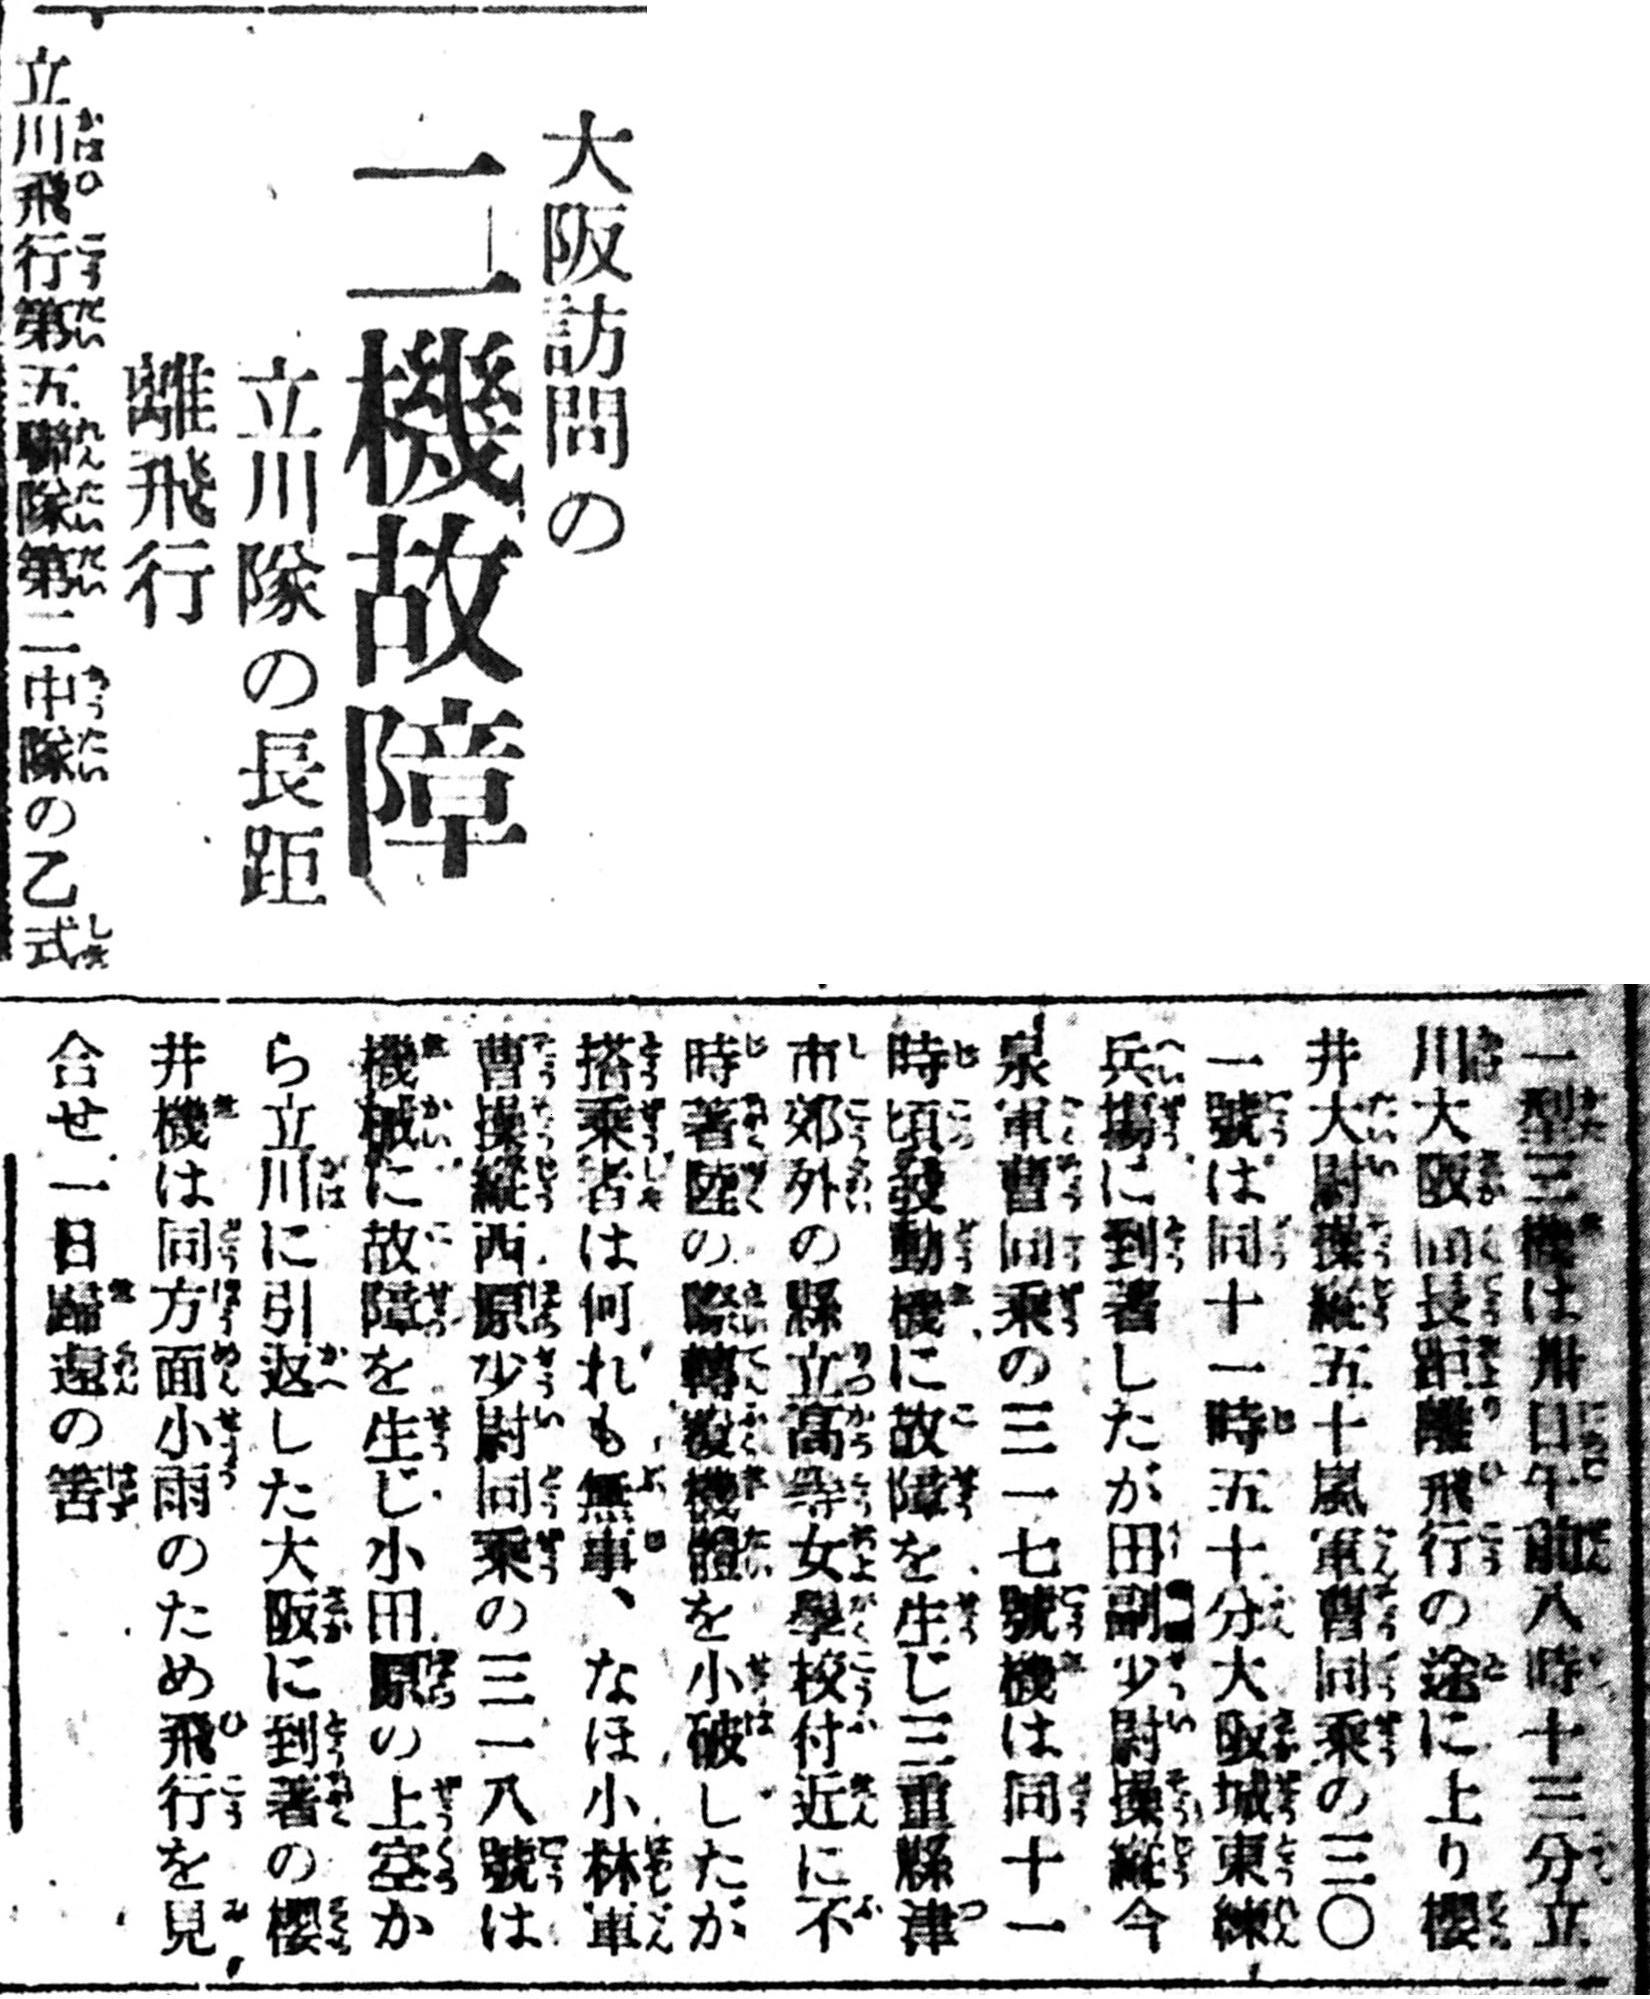 大阪訪問の
二機故障
立川隊の長距
離飛行
立川飛行第五聯隊第二中隊の乙式
一型三機は卅日午前八時十三分立
川大阪間長距離飛行の途に上り櫻
井大尉操縦五十嵐軍曹同乘の三〇
一號は同十一時五十分大阪城東練
兵場に到著したが田副少尉操縦今
泉軍曹同乘の三一七號機は同十一
時頃發動機に故障を生じ三重縣津
市郊外の縣立高等女學校付近に不
時著陸の際轉覆機體を小破したが
搭乘者は何れも無事、なほ小林軍
曹操縦西原少尉同乘の三一八號は
機械に故障を生じ小田原の上空か
ら立川に引返した大阪に到著の櫻
井機は同方面小雨のため飛行を見
合せ一日歸還の筈